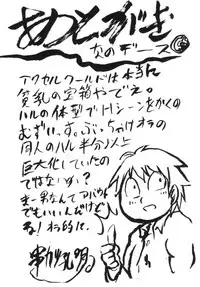 あとがき
なのデース
アクセルワールドは本当に
貧乳の宝箱やでぇ。
ハルの体型ブートレシーンをかくの
むずいっす。ぶっちゃけオラの
同人のハル半分以上
巨大化していたの
ではないかい?
まー男なんてアバウト
でもいいんだけど
ね!オラ的に。